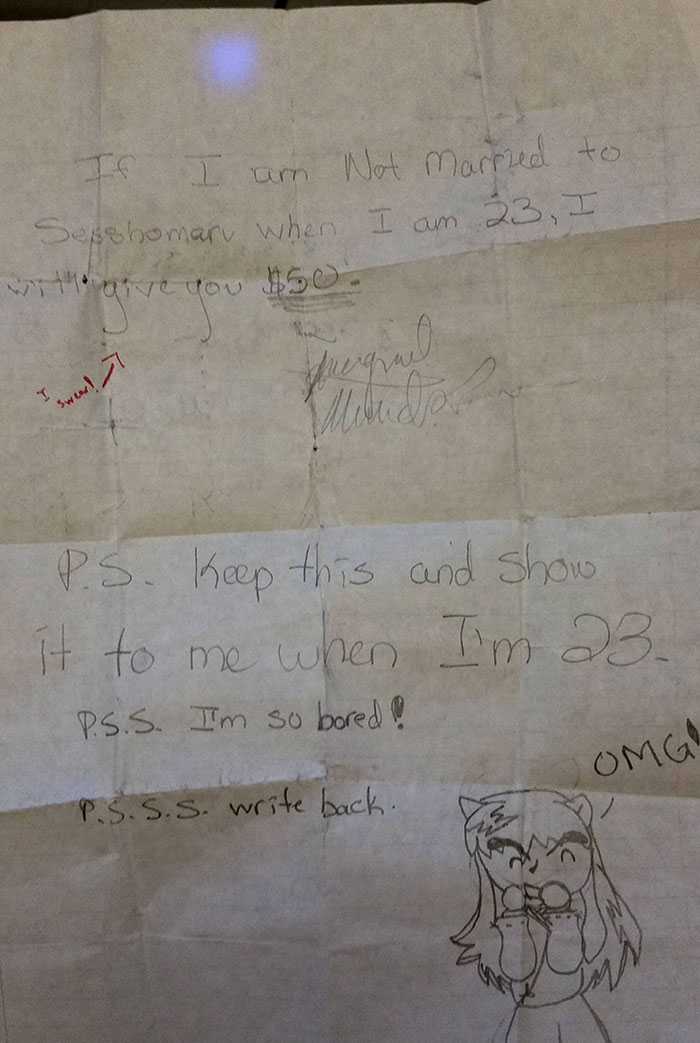 If I am Not Married to
Sesshomaru when I am 23, I
will give you $50.
I swear!
P.S. Keep this and show
it to me when I'm 23.
P.S.S. I'm so bored!
P.S.S.S. write back.
OMG!